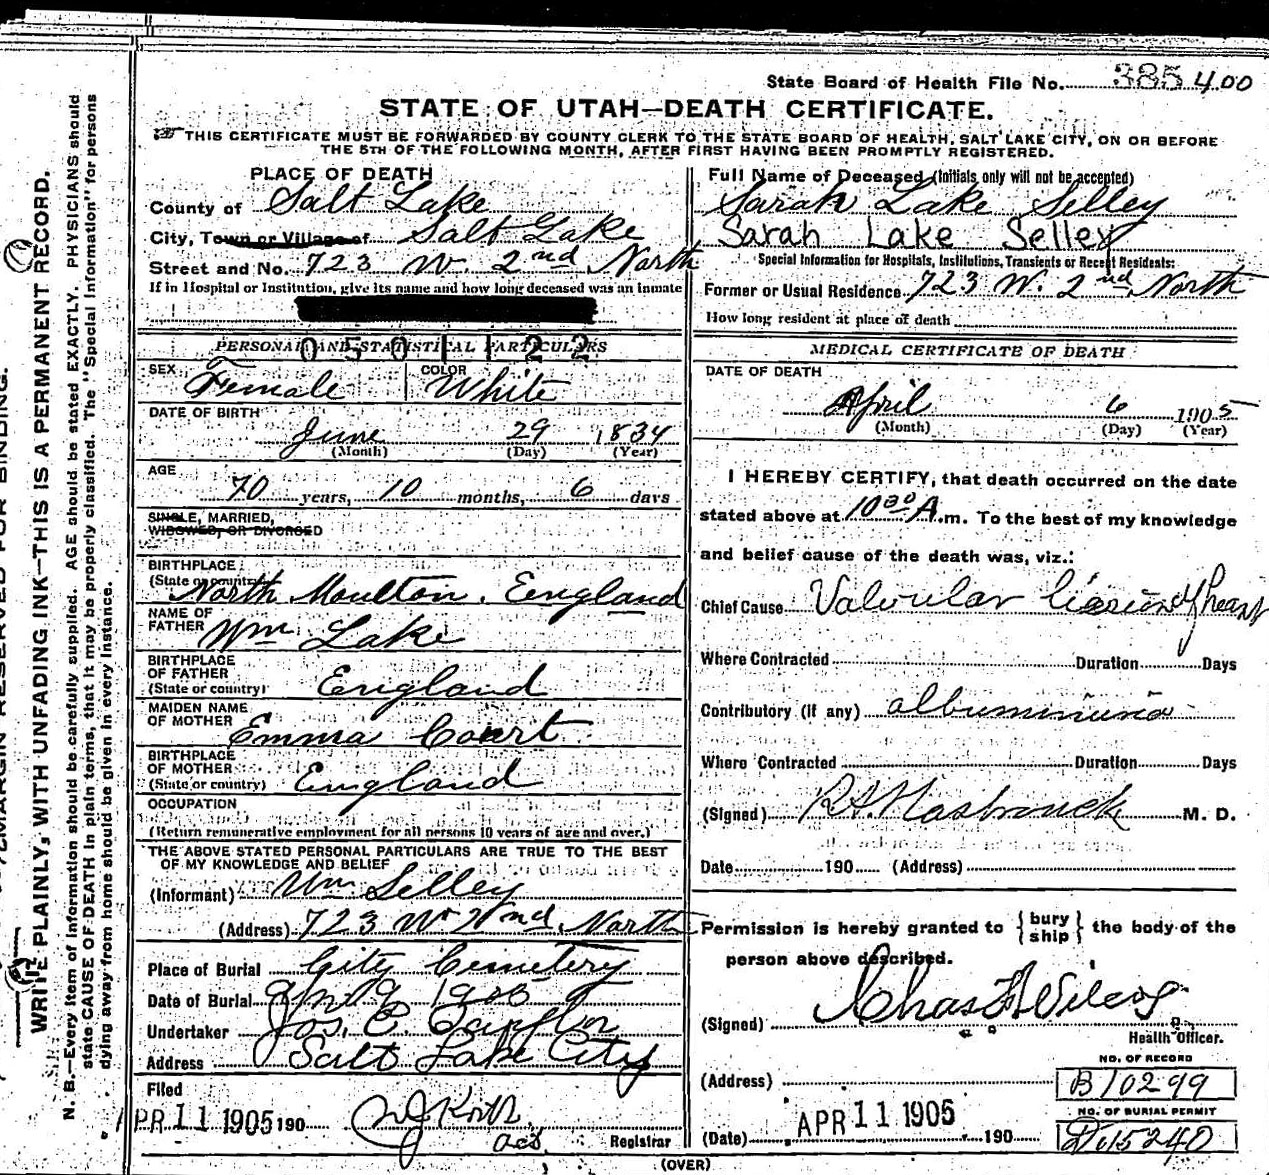 State Board of Health File No. 385 400
STATE OF UTAH—DEATH CERTIFICATE.
THIS CERTIFICATE MUST BE FORWARDED BY COUNTY CLERK TO THE STATE BOARD OF HEALTH, SALT LAKE CITY, ON OR BEFORE
THE 5TH OF THE FOLLOWING MONTH, AFTER FIRST HAVING BEEN PROMPTLY REGISTERED.
PLACE OF DEATH
County of Salt Lake
City, Town or Village of Salt Lake
Street and No. 723 W. 2nd North
If in Hospital or Institution, give its name and how long deceased was an inmate
PERSONAL AND STATISTICAL PARTICULARS
0501122
SEX Female COLOR White
DATE OF BIRTH
June 29 1834
(Month) (Day) (Year)
AGE
70 years, 10 months, 6 days
SINGLE, MARRIED,
WIDOWED, OR DIVORCED
BIRTHPLACE
(State or country) North Moulton, England
NAME OF
FATHER Wm Lake
BIRTHPLACE
OF FATHER
(State or country) England
MAIDEN NAME
OF MOTHER Emma Court
BIRTHPLACE
OF MOTHER
(State or country) England
OCCUPATION
(Return remunerative employment for all persons 10 years of age and over.)
THE ABOVE STATED PERSONAL PARTICULARS ARE TRUE TO THE BEST
OF MY KNOWLEDGE AND BELIEF
(Informant) Wm Selley
(Address) 723 W 2nd North
Place of Burial City Cemetery
Date of Burial Apr 9 1905
Undertaker Jos. E. Taylor
Address Salt Lake City
Filed
APR 11 1905 190
Registrar
Full Name of Deceased (Initials only will not be accepted)
Sarah Lake Selley
Sarah Lake Selley
Special Information for Hospitals, Institutions, Transients or Recent Residents:
Former or Usual Residence 723 W. 2nd North
How long resident at place of death
MEDICAL CERTIFICATE OF DEATH
DATE OF DEATH
April 6 1905
(Month) (Day) (Year)
I HEREBY CERTIFY, that death occurred on the date
stated above at 10 30 A.m. To the best of my knowledge
and belief cause of the death was, viz.:
Chief Cause Valvular liesion of heart
Where Contracted Duration Days
Contributory (if any) albuminuria
Where Contracted Duration Days
(Signed) Hasbrouck M. D.
Date 190 (Address)
Permission is hereby granted to { bury ship } the body of the
person above described.
(Signed) Chas Wilcox
Health Officer.
NO. OF RECORD
(Address) B10299
NO. OF BURIAL PERMIT
(Date) APR 11 1905 190 D15240
(OVER)
MARGIN RESERVED FOR BINDING.
WRITE PLAINLY, WITH UNFADING INK—THIS IS A PERMANENT RECORD.
N. B.—Every item of information should be carefully supplied. AGE should be stated EXACTLY. PHYSICIANS should
state CAUSE OF DEATH in plain terms, that it may be properly classified. The "Special Information" for persons
dying away from home should be given in every instance.